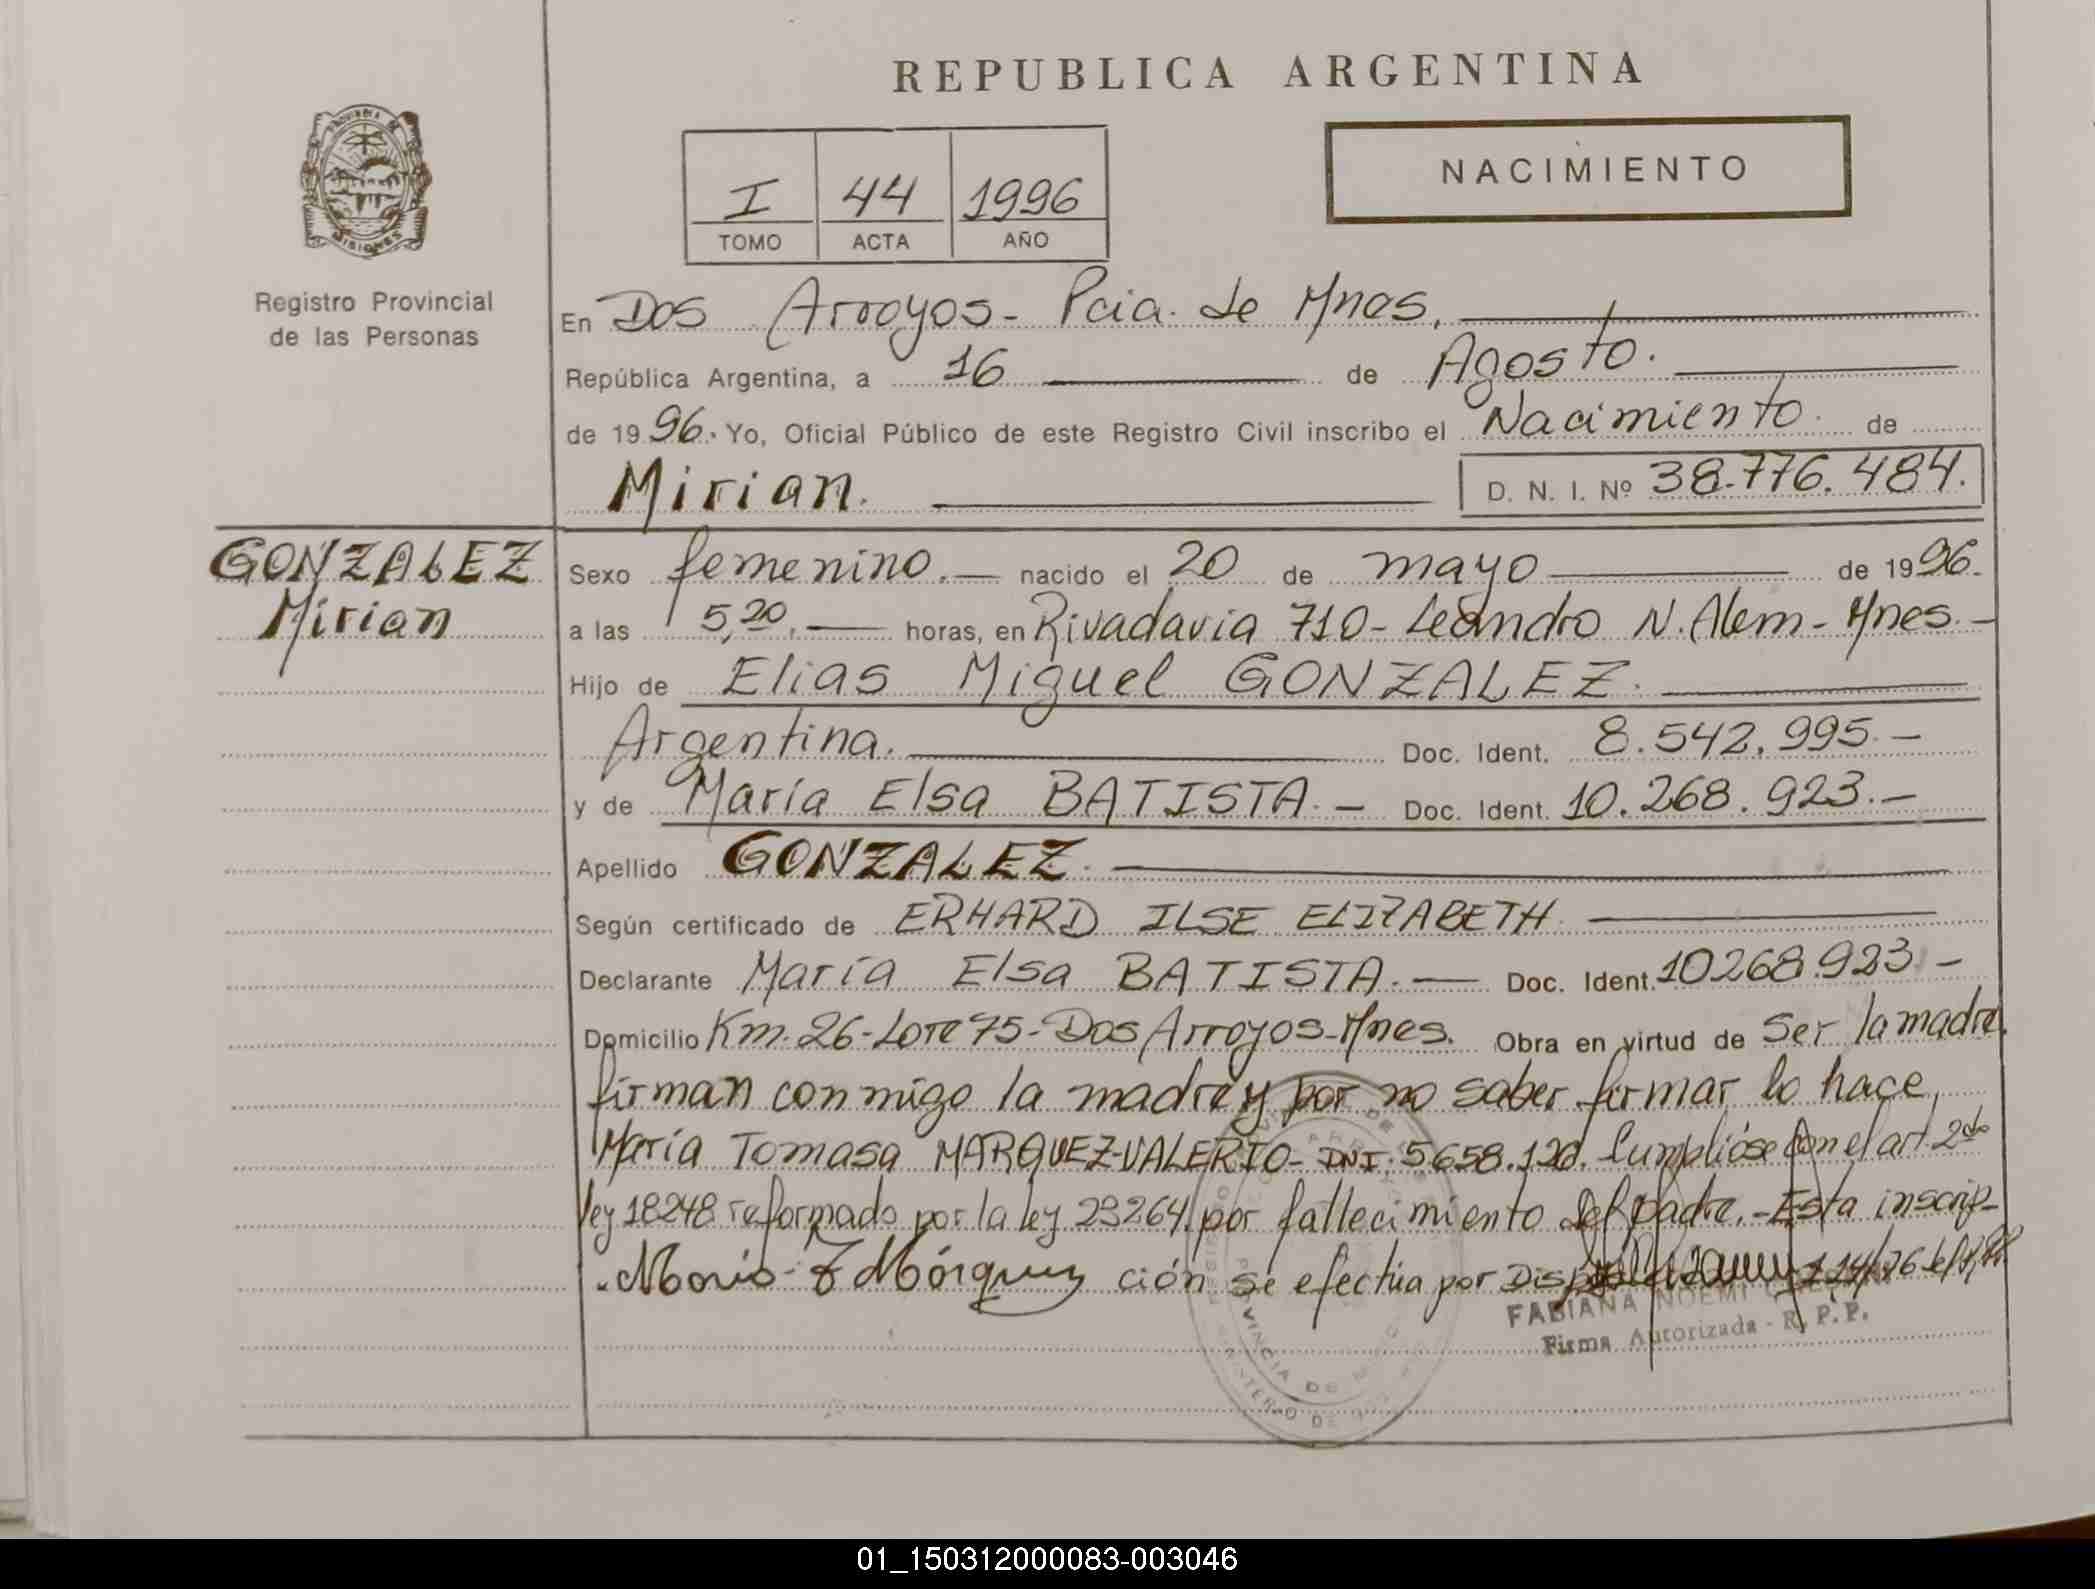 REPUBLICA ARGENTINA
PROVINCIA DE
MISIONES
Registro Provincial
de las Personas
I 44 1996
TOMO ACTA AÑO
NACIMIENTO
En Dos Arroyos - Pcia. de Mnes.
República Argentina, a 16 de Agosto.
de 1996. Yo, Oficial Público de este Registro Civil inscribo el Nacimiento de
Mirian. D. N. I. Nº 38.776.484.
GONZALEZ
Mirian
Sexo femenino. nacido el 20 de mayo de 1996.
a las 5,20. horas, en Rivadavia 710 - Leandro N. Alem - Mnes. -
Hijo de Elias Miguel GONZALEZ.
Argentina. Doc. Ident. 8.542.995. -
y de María Elsa BATISTA. - Doc. Ident. 10.268.923. -
Apellido GONZALEZ.
Según certificado de ERHARD ILSE ELIZABETH.
Declarante María Elsa BATISTA. - Doc. Ident. 10268.923. -
Domicilio Km. 26 - Lote 75 - Dos Arroyos - Mnes. Obra en virtud de Ser la madre.
firman conmigo la madre y por no saber firmar lo hace
María Tomasa MARQUEZ-VALERIO - DNI. 5658.120. Cumplióse con el art. 2do
ley 18248 reformado por la ley 23264. por fallecimiento del padre. - Esta inscrip-
ción se efectúa por
FABIANA NOEMI
Firma Autorizada - R. P. P.
PROVINCIA DE
MINISTERIO DE
01_150312000083-003046